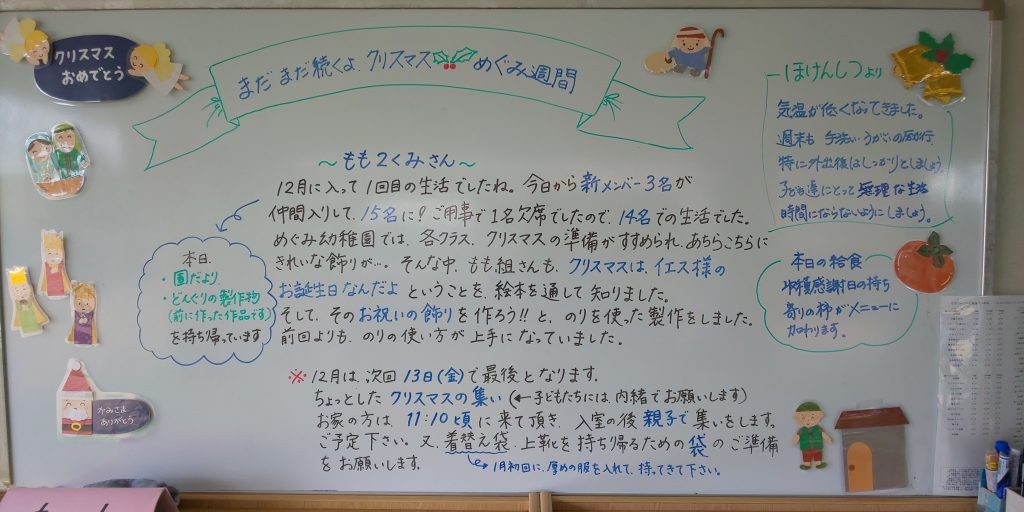 クリスマス
おめでとう
まだまだ続くよ、クリスマス めぐみ週間
～もも２くみさん～
12月に入って1回目の生活でしたね。今日から新メンバー3名が
仲間入りして、15名に！ご用事で1名欠席でしたので、14名での生活でした。
めぐみ幼稚園では、各クラス、クリスマスの準備がすすめられ、あちらこちらに
きれいな飾りが…。そんな中、もも組さんも、クリスマスは、イエス様の
お誕生日なんだよ ということを、絵本を通して知りました。
そして、そのお祝いの飾りを作ろう!! と、のりを使った製作をしました。
前回よりも、のりの使い方が上手になっていました。
※12月は、次回13日(金)で最後となります。
ちょっとしたクリスマスの集い(←子どもたちには、内緒でお願いします)
お家の方は、11:10頃に来て頂き、入室の後 親子で集いをします。
ご予定下さい。又、着替え袋、上靴を持ち帰るための袋のご準備
をお願いします。
→1月初回に、厚めの服を入れて、持ってきて下さい。
本日、
・園だより
・どんぐりの製作物
(前に作った作品です)
を持ち帰っています
ほけんしつより
気温が低くなってきました。
週末も 手洗い・うがいの励行、
特に外出後はしっかりとしましょう。
子ども達にとって無理な生活
時間にならないようにしましょう。
本日の給食
収穫感謝日の持ち
寄りの柿がメニューに
加わります。
かみさま
ありがとう